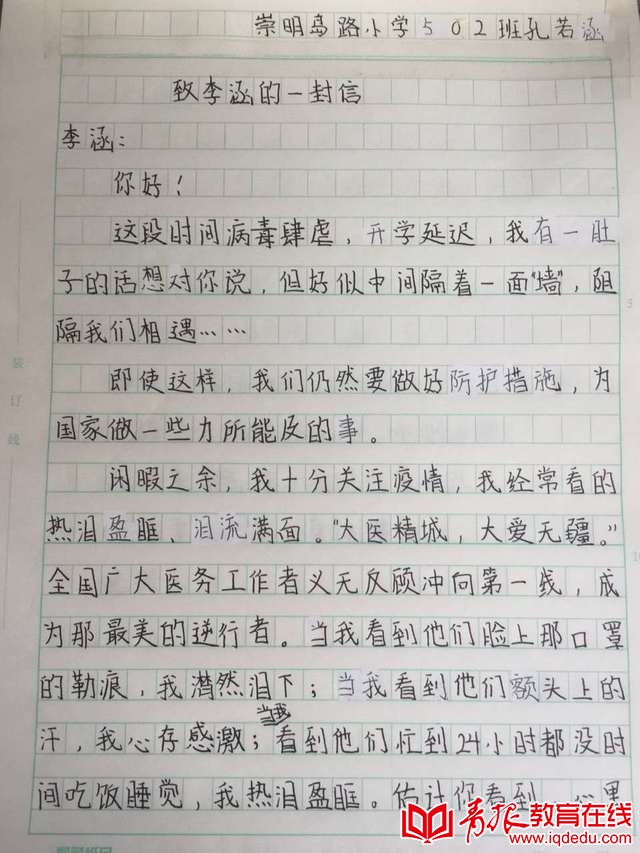 崇明岛路小学502班孔若涵
致李涵的一封信
李涵：
你好！
这段时间病毒肆虐，开学延迟，我有一肚
子的话想对你说，但好似中间隔着一面“墙”，阻
隔我们相遇……
即使这样，我们仍然要做好防护措施，为
国家做一些力所能及的事。
闲暇之余，我十分关注疫情，我经常看的
热泪盈眶、泪流满面。“大医精城，大爱无疆。”
全国广大医务工作者义无反顾冲向第一线，成
为那最美的逆行者。当我看到他们脸上那口罩
的勒痕，我潸然泪下；当我看到他们额头上的
汗，我心存感激；当我看到他们忙到24小时都没时
间吃饭睡觉，我热泪盈眶。估计你看到，心里
装订线
青报教育在线
www.iqdedu.com